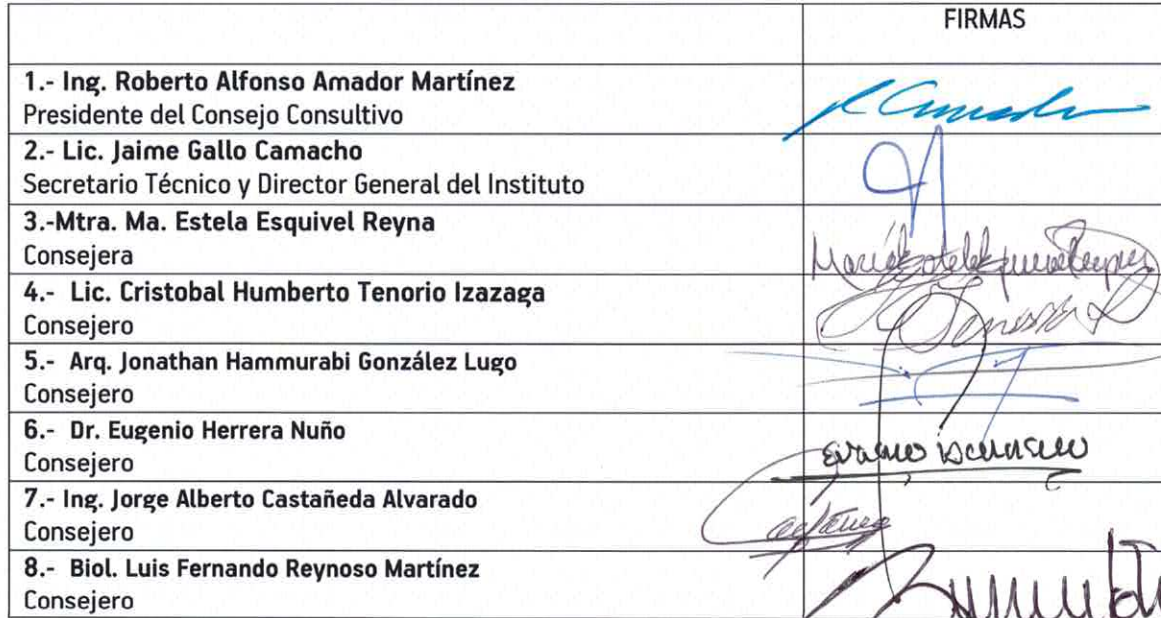 FIRMAS
1.- Ing. Roberto Alfonso Amador Martínez
Presidente del Consejo Consultivo
2.- Lic. Jaime Gallo Camacho
Secretario Técnico y Director General del Instituto
3.-Mtra. Ma. Estela Esquivel Reyna
Consejera
4.- Lic. Cristobal Humberto Tenorio Izazaga
Consejero
5.- Arq. Jonathan Hammurabi González Lugo
Consejero
6.- Dr. Eugenio Herrera Nuño
Consejero
7.- Ing. Jorge Alberto Castañeda Alvarado
Consejero
8.- Biol. Luis Fernando Reynoso Martínez
Consejero